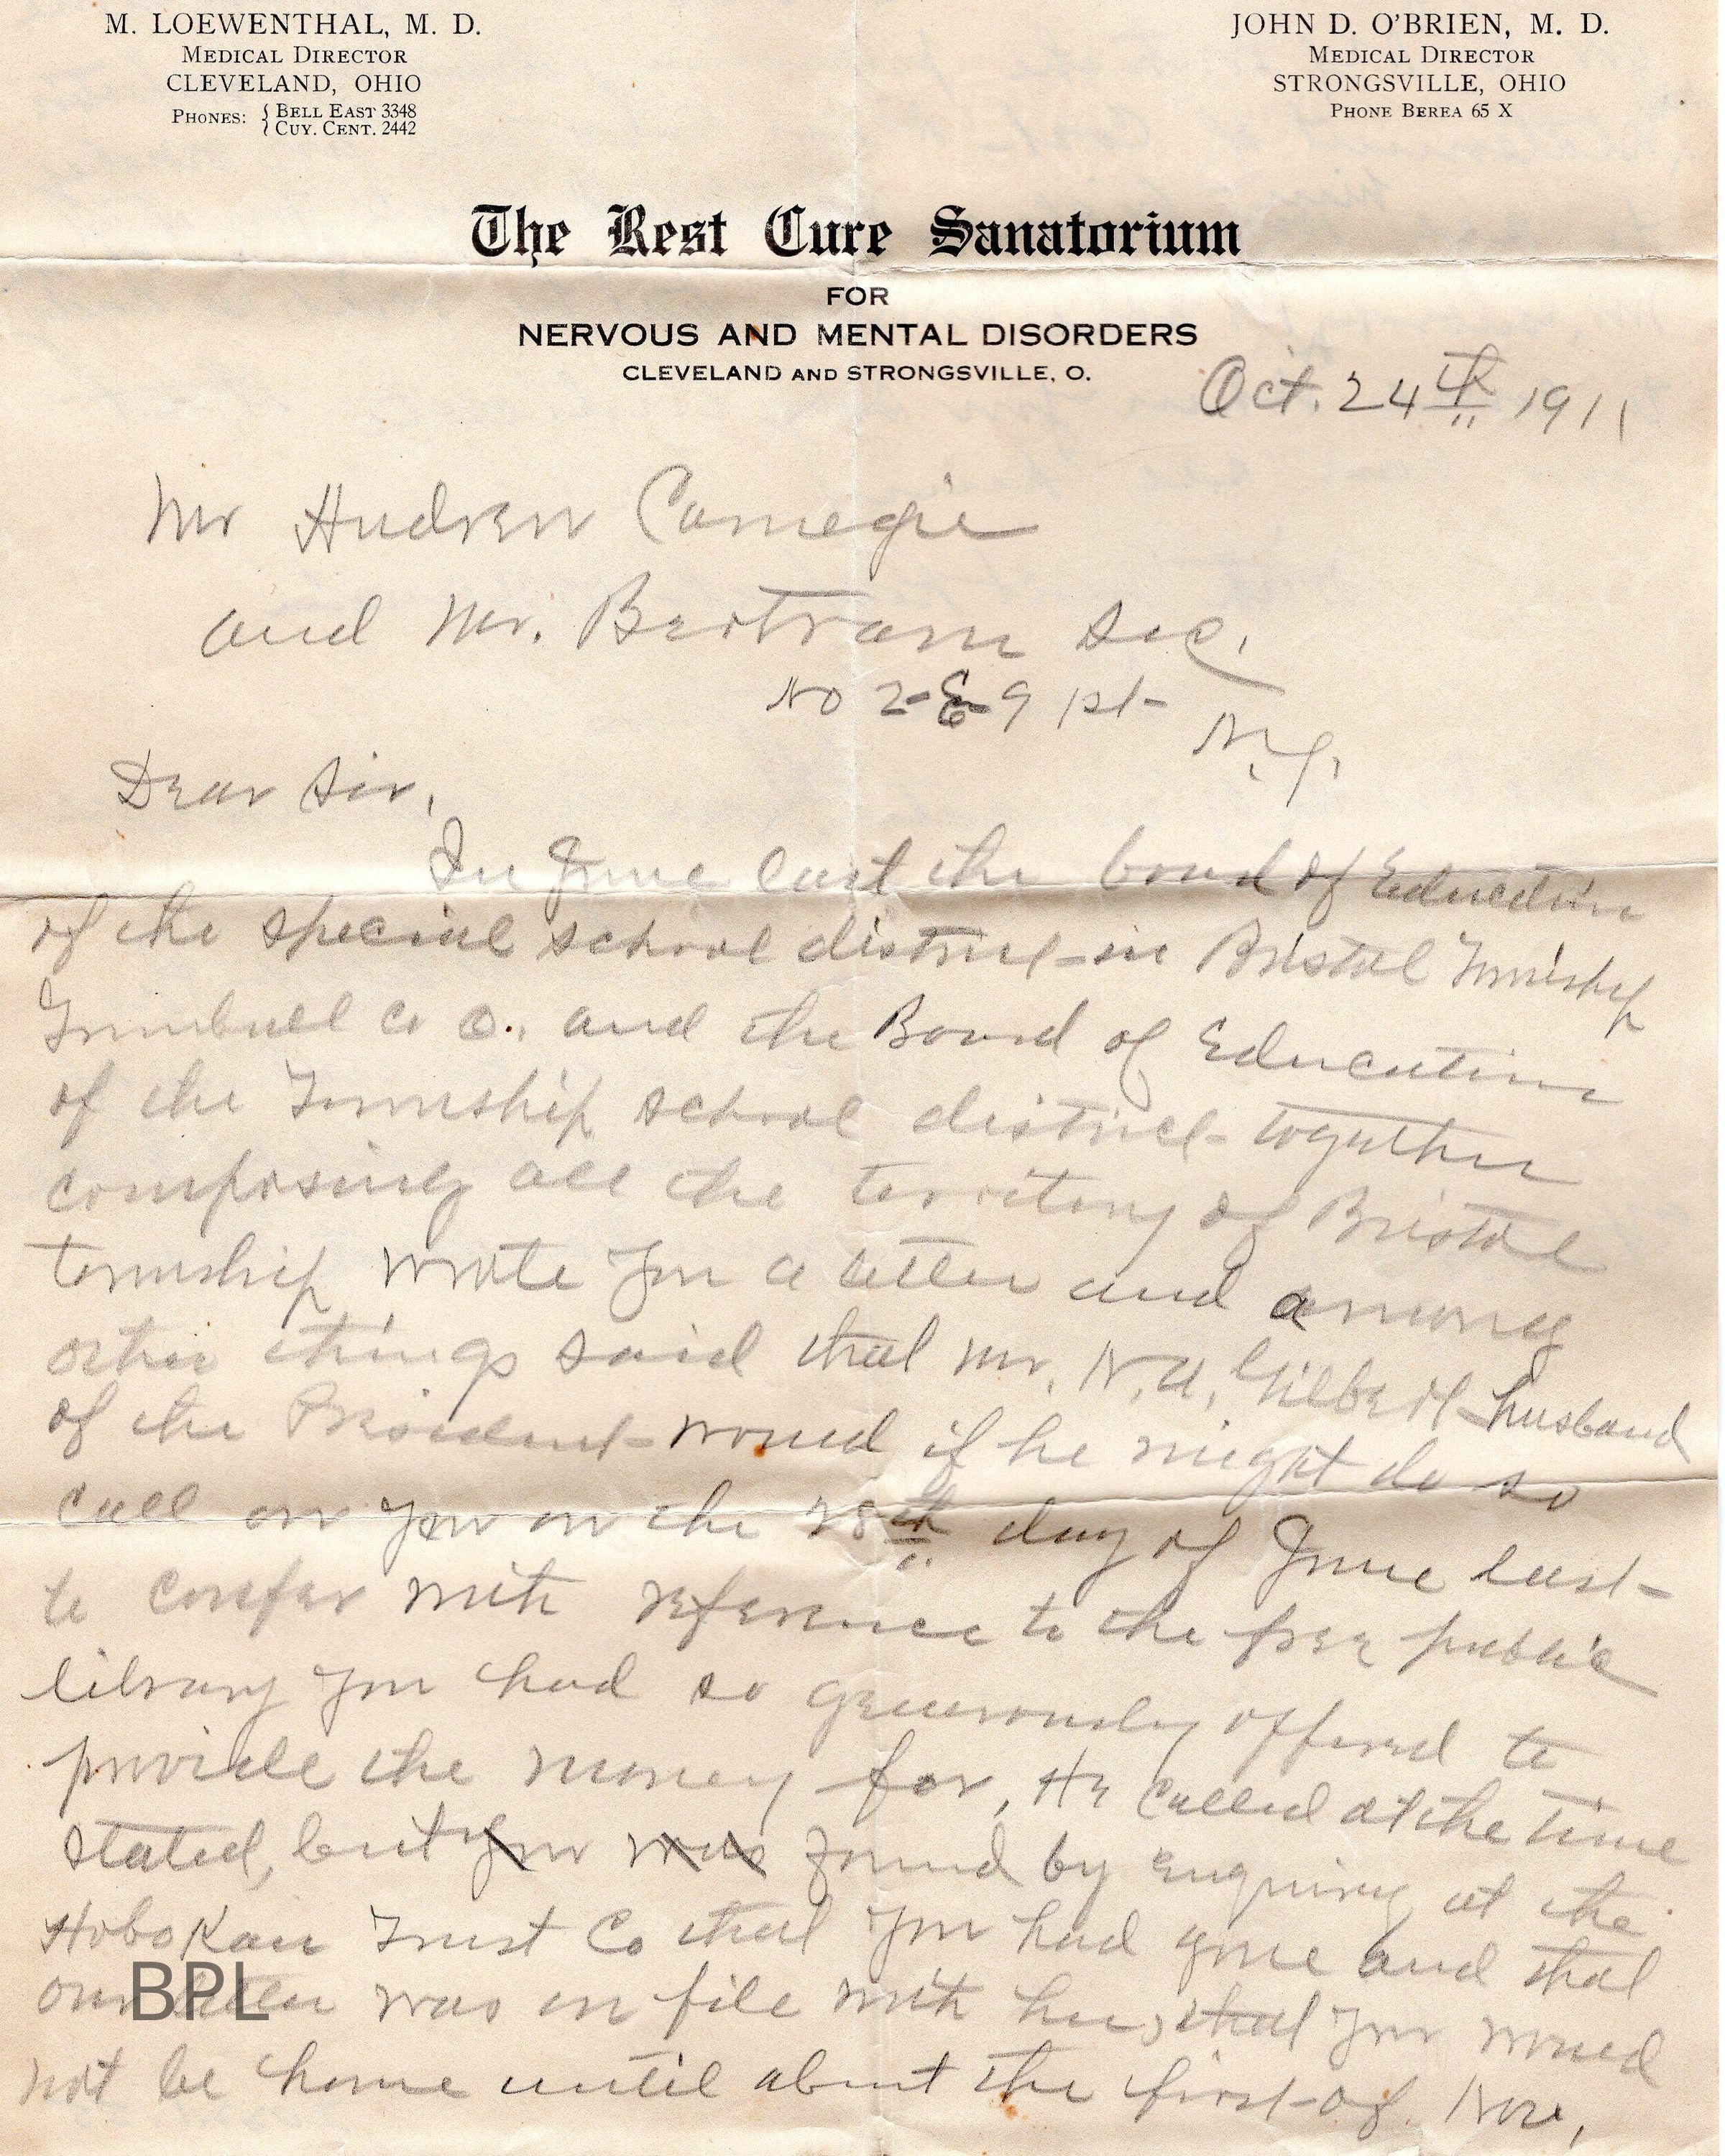 M. LOEWENTHAL, M. D.
MEDICAL DIRECTOR
CLEVELAND, OHIO
PHONES: { BELL EAST 3348
CUY. CENT. 2442
JOHN D. O'BRIEN, M. D.
MEDICAL DIRECTOR
STRONGSVILLE, OHIO
PHONE BEREA 65 X
The Rest Cure Sanatorium
FOR
NERVOUS AND MENTAL DISORDERS
CLEVELAND AND STRONGSVILLE, O.
Oct. 24th 1911
Mr Andrew Carnegie
and Mr. Bertram Sec.
No 2-E-91st
N.Y.
Dear Sir,
In June last the board of Education
of the special school district in Bristol Township
Trumbull Co O. and the Board of Education
of the Township school district together
composing all the territory of Bristol
township wrote you a letter and among
other things said that Mr. N.A. Gilbert husband
of the President would if he might do so
call on you on the 28th day of June last
to confer with reference to the free public
library you had so generously offered to
provide the money for, He called at the time
stated, but you was found by enquiry at the
Hoboken Trust Co that you had gone and that
our letter was on file with her, that you would
not be home until about the first of Nov,
BPL